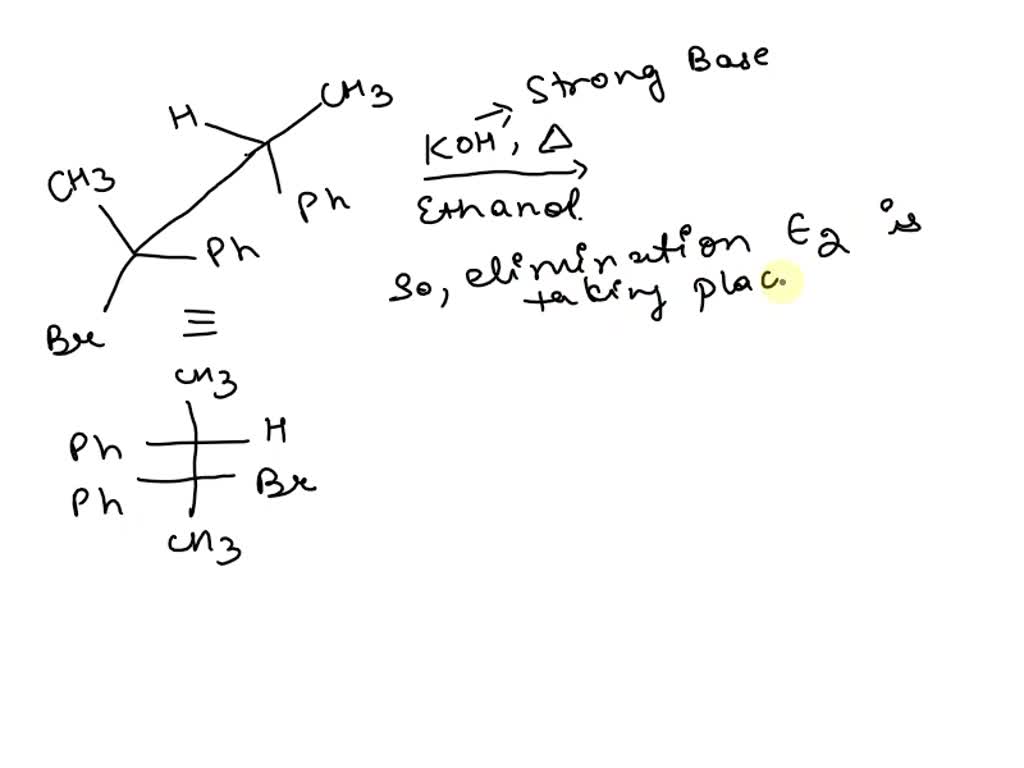 H CH3
CH3 Ph
Ph
Br
≡
KOH, Δ → Strong Base
Ethanol
So, elimination E2 is
taking plac
CH3
Ph H
Ph Br
CH3